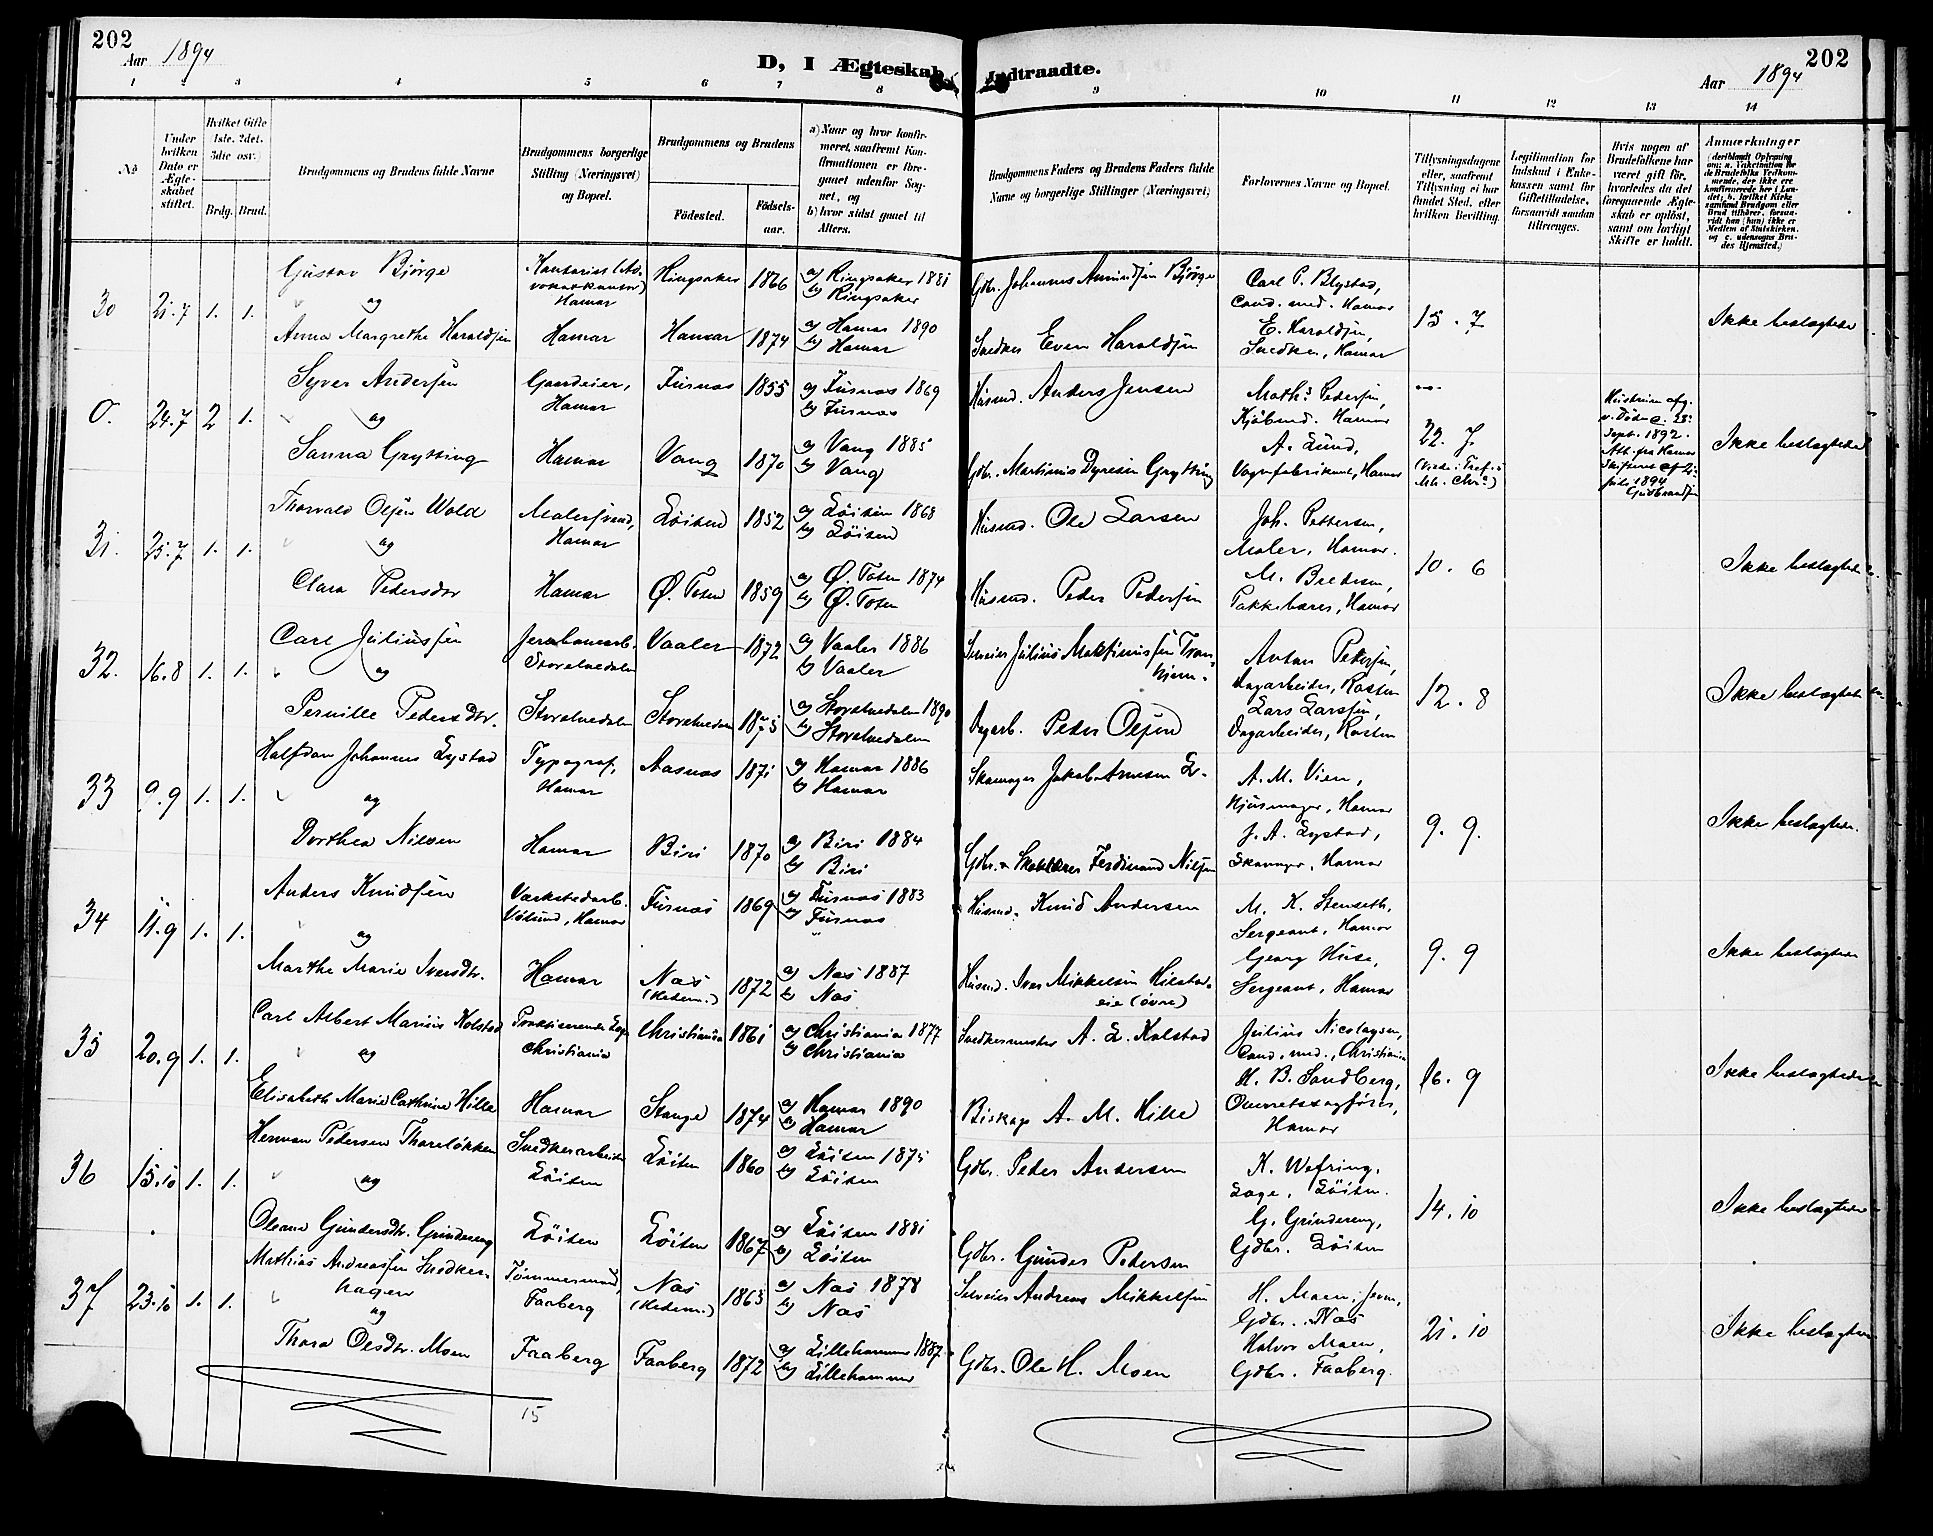 202
Aar 1894
D, I Ægteskab Indtraadte.
202
Aar 1894
1 2 3 4 5 6 7 8 9 10 11 12 13 14
No
Under hvilken Dato er Ægteskabet stiftet.
Hvilket Gifte 1ste. 2det. 3die osv.
Brdg. Brud.
Brudgommens og Brudens fulde Navne
Brudgommens borgerlige Stilling (Næringsvei) og Bopæl.
Brudgommens og Brudens
Fødested.
Fødselsaar.
a) Naar og hvor konfirmeret, saafremt Konfirmationen er foregaaet udenfor Sognet, og
b) hvor sidst gaaet til Alters.
Brudgommens Faders og Brudens Faders fulde Navne og borgerlige Stillinger (Næringsvei)
Forlovernes Navne og Bopæl.
Tillysningsdagene eller, saafremt Tillysning ei har fundet Sted, efter hvilken Bevilling.
Legitimation for Indskud i Enkekassen samt for Giftetilladelse, forsaavidt saadan tiltrænges.
Hvis nogen af Brudefolkene har været gift før, hvorledes da det foregaaende Ægteskab er opløst, samt om lovligt Skifte er holdt.
Anmærkninger
30 21.7 1. 1.
Gustav Bjørge
og
Anna Margrethe Haraldsen
Kontorist (Advokatkontor) Hamar
Hamar
Ringsaker 1866
Hamar 1874
a) Ringsaker 1881
b) Ringsaker
a) Hamar 1890
b) Hamar
Gdbr. Johannes Amundsen Bjørge
Snedker Even Haraldsen
Carl P. Blystad,
Cand. med. Hamar
E. Haraldsen,
Snedker, Hamar
15. 7
Ikke beslægtede
0. 24.7 2 1.
Syver Andersen
og
Sanna Grytting
Gaardeier,
Hamar
Hamar
Furnæs 1855
Vang 1870
a) Furnæs 1869
b) Furnæs
a) Vang 1885
b) Vang
Husmd. Anders Jensen
Gdbr. Martinus Dyresen Grytting
Maths Pedersen,
Kjøbmd. Hamar
A. Lund,
Vognfabrikant, Hamar
22. 7.
Hustruen afg.
v. Døden d. 25.
Sept. 1892.
Att. fra Hamar
Skifteret af 2.
juli 1894
Gudbrandsen
Ikke beslægtede
31. 25.7 1. 1.
Thorvald Olsen Wold
og
Clara Pedersdtr
Malersvend,
Hamar
Hamar
Løiten 1852
Ø. Toten 1859
a) Løiten 1868
b) Løiten
a) Ø. Toten 1874
b) Ø. Toten
Husmd. Ole Larsen
Husmd. Peder Pedersen
Joh. Pettersen,
Maler, Hamar.
M. Bredesen,
Pakkebærer, Hamar
10. 6
Ikke beslægtede
32. 16.8 1. 1.
Carl Juliussen
og
Pernille Pedersdtr.
Jernbanearb.
Storelvedalen
Storelvedalen
Vaaler 1872
Storelvedalen 1875
a) Vaaler 1886
b) Vaaler
a) Storelvedalen 1890
b) Storelvedalen
Selveier Julius Martinussen Tronhjem.
Dagarb. Peder Olsen
Anton Pedersen,
Dagarbeider, Kosten
Lars Larssen,
Dagarbeider, Kosten
12. 8
Ikke beslægtede
33 9.9 1. 1.
Halfdan Johannes Lystad
og
Dorthea Nilsen
Typograf,
Hamar
Hamar
Aasnæs 1871
Biri 1870
a) Hamar 1886
b) Hamar
a) Biri 1884
b) Biri
Skomager Jakob Arnesen L.
Gdbr. & Skolelærer Ferdinand Nilsen
A. M. Vien,
Hjulmager, Hamar
J. A. Lystad,
Skomager, Hamar
9. 9.
Ikke beslægtede.
34 11.9 1. 1.
Anders Knudsen
og
Marthe Marie Iversdtr.
Værkstedarb.
Vølund, Hamar
Hamar
Furnæs 1869
Næs (Hedem.) 1872
a) Furnæs 1883
b) Furnæs
a) Næs 1887
b) Næs
Husmd. Knud Andersen
Husmd. Iver Mikkelsen Hilstad-
eie (øvre)
M. K. Stenseth,
Sergeant, Hamar
Georg Huse,
Sergeant, Hamar
9. 9
Ikke beslægtede
35 20.9 1. 1.
Carl Albert Marius Kolstad
og
Elisabeth Marie Cathrine Hille
Praktiserende Læge
Christiania
Hamar
Christiania 1861
Stange 1874
a) Christiania 1877
b) Christiania
a) Hamar 1890
b) Hamar
Snedkermester A. L. Kolstad
Biskop A. M. Hille
Julius Nicolaysen,
Cand. med., Christiania
H. B. Sandberg,
Overretssagfører,
Hamar
16. 9
Ikke beslægtede
36 15.10 1. 1.
Herman Pedersen Thoreløkken
og
Oleane Gundersdtr. Grindereng
Snedkerarbeider
Løiten
Løiten
Løiten 1860
Løiten 1867
a) Løiten 1875
b) Løiten
a) Løiten 1881
b) Løiten
Gdbr. Peder Andersen
Gdbr. Gunder Pedersen
K. Wefring,
Læge, Løiten.
G. Grindereng,
Gdbr. Løiten
14. 10
Ikke beslægtede
37 23.10 1. 1.
Mathias Andreassen Snedker-
hagen
og
Thora Olsdtr. Moen
Tømmermand,
Faaberg
Faaberg
Næs (Hedem.) 1863
Faaberg 1872
a) Næs 1878
b) Næs
a) Lillehammer 1887
b) Lillehammer
Selveier Andreas Mikkelsen
Gdbr. Ole H. Moen
H. Moen, jevn,
Gdbr. Næs
Halvor Moen,
Gdbr. Faaberg.
21. 10
Ikke beslægtede
15